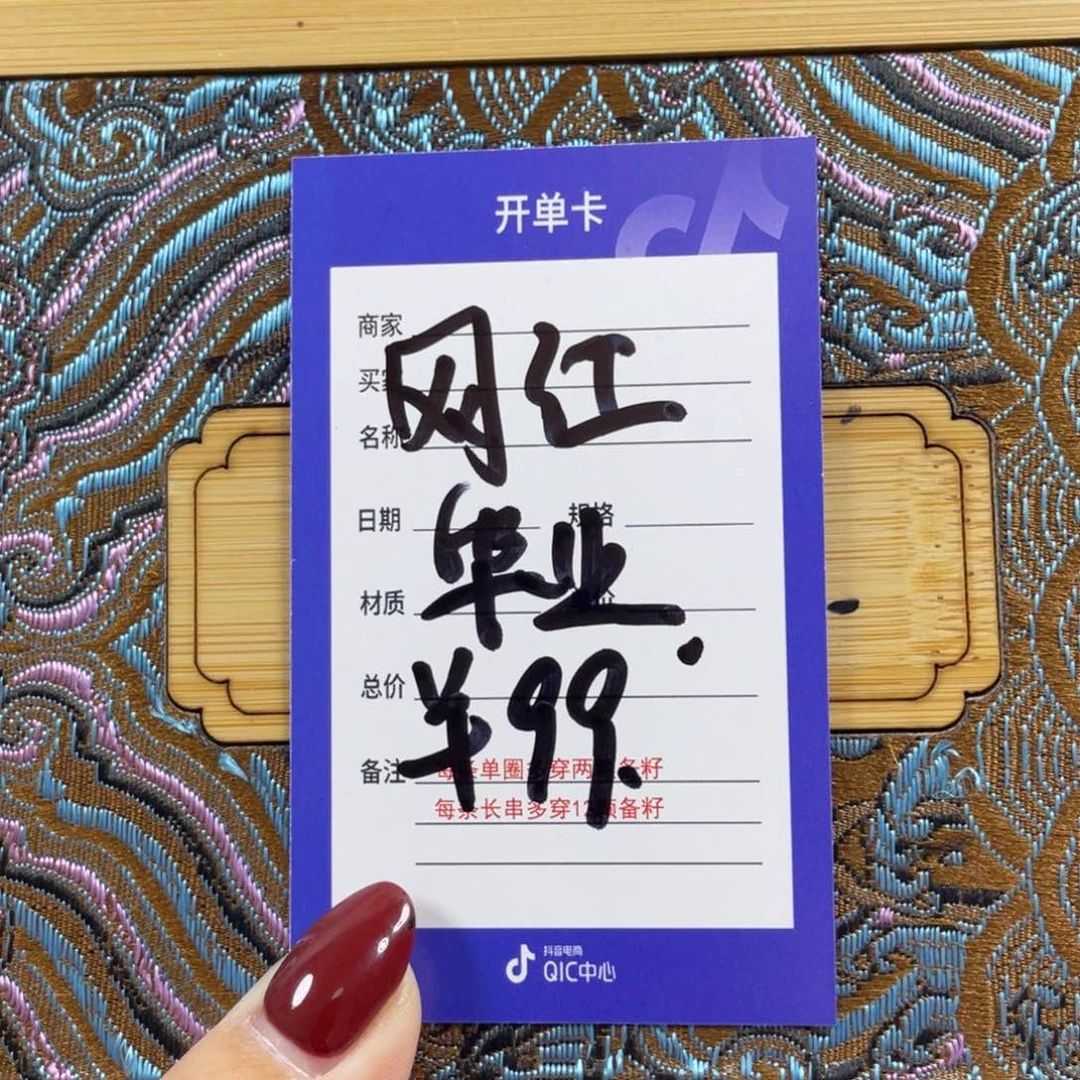 开单卡
商家
买家
名称
网红
日期 规格
毕业
材质
总价
羊99.
备注
每条单圈多穿两颗备籽
每条长串多穿12颗备籽
抖音电商
QIC中心